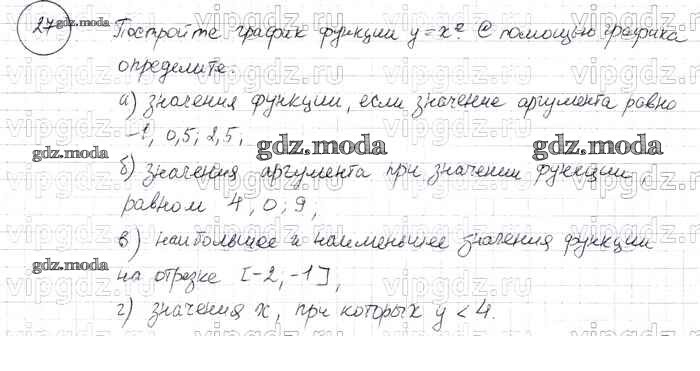 27 gdz.moda Постройте график функции y = x². С помощью графика
определите:
а) значения функции, если значение аргумента равно
-1, 0,5; 2,5;
gdz.moda gdz.moda gdz.moda
б) значения аргумента при значении функции,
равном 4, 0; 9;
в) наибольшее и наименьшее значения функции
gdz.moda
на отрезке [-2, -1];
г) значения x, при которых y < 4.
vipgdz.ru